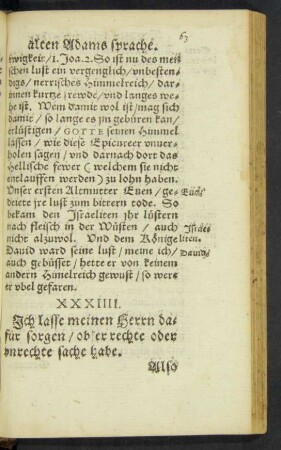 63
alten Adams sprache.
ewigkeit / 1. Joa. 2. So ist nu des men
schen lust ein vergenglich / vnbesten-
digs / nerrisches Himmelreich / dar-
innen kurtze frewde / vnd langes we-
he ist. Wem damit wol ist / mag sich
damit / so lange es jm gebüren kan /
erlüstigen / GOTTE seinen Himmel
lassen / wie diese Epicureer vnuer-
holen sagen / vnd darnach dort das
Hellische fewer ( welchem sie nicht
entlauffen werden ) zu lohn haben.
Vnser ersten Altmutter Euen / ge-
diete jre lust zum bittern tode. So
bekam den Israeliten jhr lüstern
nach fleisch in der Wüsten / auch
nicht alzuwol. Vnd dem Könige
Dauid ward seine lust / meine ich /
auch gebüsset / hette er von keinem
andern Himelreich gewust / so were
er vbel gefaren.
Israe-
liten.
Dauid /
XXXIIII.
Ich lasse meinen Herrn da-
für sorgen / ob er rechte oder
vnrechte sache habe.
Also